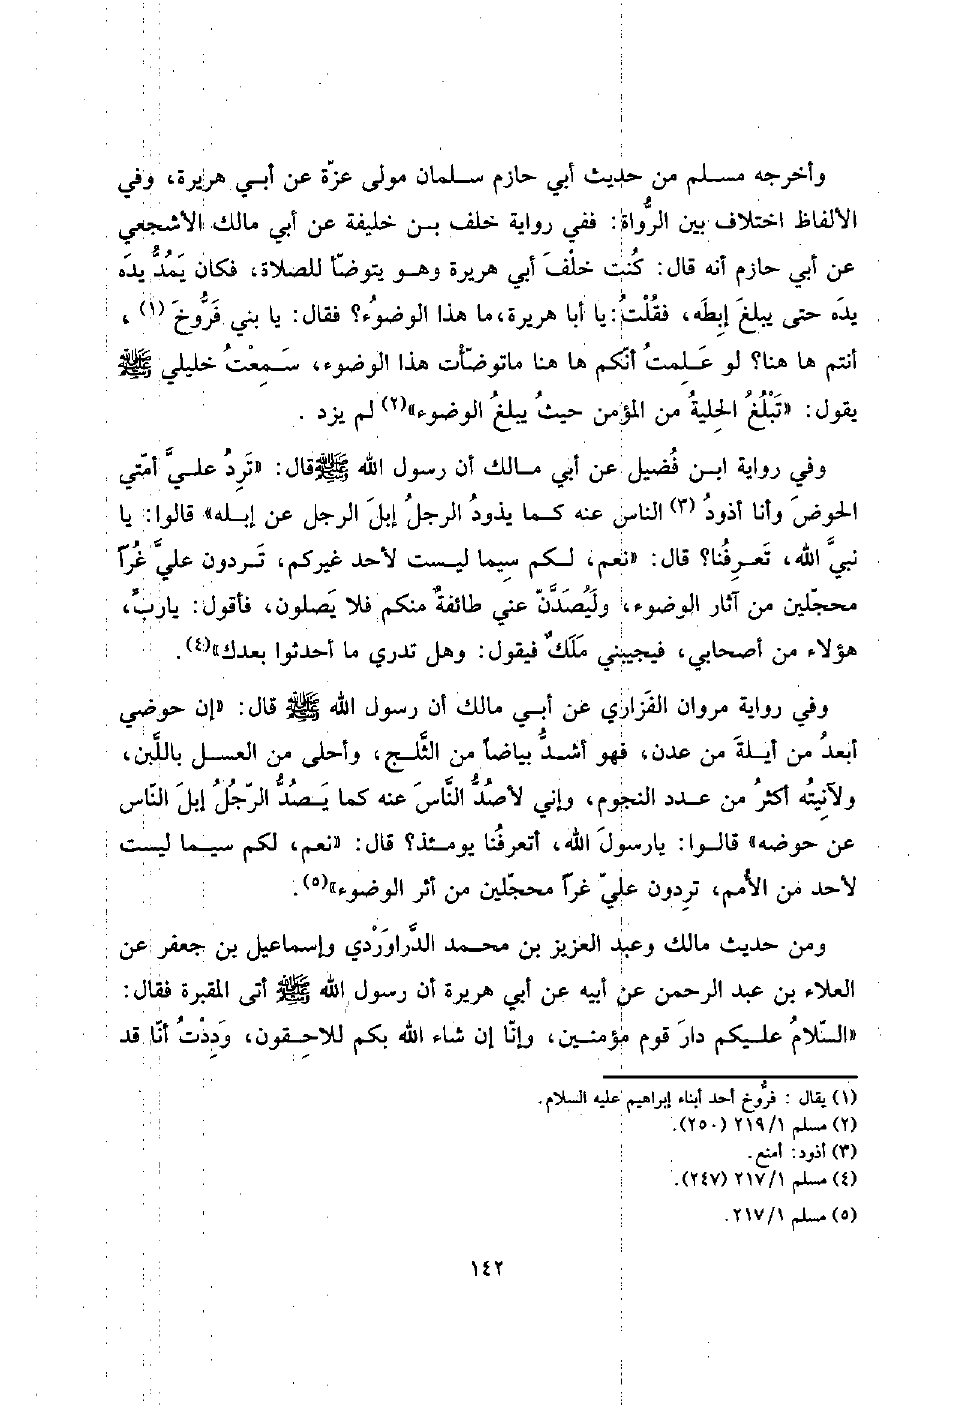 وأخرجه مسلم من حديث أبي حازم سلمان مولى عزّة عن أبي هريرة، وفي
الألفاظ اختلاف بين الرُّواة: ففي رواية خلف بن خليفة عن أبي مالك الأشجعي
عن أبي حازم أنه قال: كُنت خلْفَ أبي هريرة وهو يتوضّأ للصلاة، فكان يَمُدُّ يدَه
يدَه حتى يبلغَ إبطَه، فقُلْتُ: يا أبا هريرة، ما هذا الوضوُء؟ فقال: يا بني فَرُّوخَ (١)،
أنتم ها هنا؟ لو عَلِمتُ أنّكم ها هنا ماتوضّأت هذا الوضوء، سَمِعْتُ خليلي ﷺ
يقول: «تَبْلُغُ الحِليةُ من المؤمن حيثُ يبلغُ الوضوء»(٢) لم يزد .
وفي رواية ابن فُضيل عن أبي مالك أن رسول الله ﷺ قال: «تَرِدُ عليَّ أمّتي
الحوضَ وأنا أذودُ (٣) الناس عنه كما يذودُ الرجلُ إبلَ الرجل عن إبله» قالوا: يا
نبيَّ الله، تَعرِفُنا؟ قال: «نعم، لكم سِيما ليست لأحد غيركم، تَردون عليَّ غُرّاً
محجّلين من آثار الوضوء، ولَيُصَدَّنّ عني طائفةٌ منكم فلا يَصلون، فأقول: ياربِّ،
هؤلاء من أصحابي، فيجيبني مَلَكٌ فيقول: وهل تدري ما أحدثوا بعدك»(٤).
وفي رواية مروان الفَزاري عن أبي مالك أن رسول الله ﷺ قال: «إن حوضي
أبعدُ من أيلةَ من عدن، فهو أشدُّ بياضاً من الثَّلج، وأحلى من العسل باللَّبن،
ولآنيتُه أكثرُ من عدد النجوم، وإني لأصُدُّ النَّاسَ عنه كما يَصدُّ الرّجُلُ إبلَ النّاس
عن حوضه» قالوا: يارسولَ الله، أتعرفُنا يومئذ؟ قال: «نعم، لكم سيما ليست
لأحد من الأُمم، تردون عليّ غراً محجّلين من أثر الوضوء»(٥).
ومن حديث مالك وعبد العزيز بن محمد الدَّراوَرْدي وإسماعيل بن جعفر عن
العلاء بن عبد الرحمن عن أبيه عن أبي هريرة أن رسول الله ﷺ أتى المقبرة فقال:
«السّلامُ عليكم دارَ قوم مؤمنين، وإنّا إن شاء الله بكم للاحِقون، وَدِدْتُ أنّا قد
(١) يقال : فرُّوخ أحد أبناء إبراهيم عليه السلام.
(٢) مسلم ٢١٩/١ (٢٥٠).
(٣) أذود: أمنع.
(٤) مسلم ٢١٧/١ (٢٤٧).
(٥) مسلم ٢١٧/١.
١٤٢